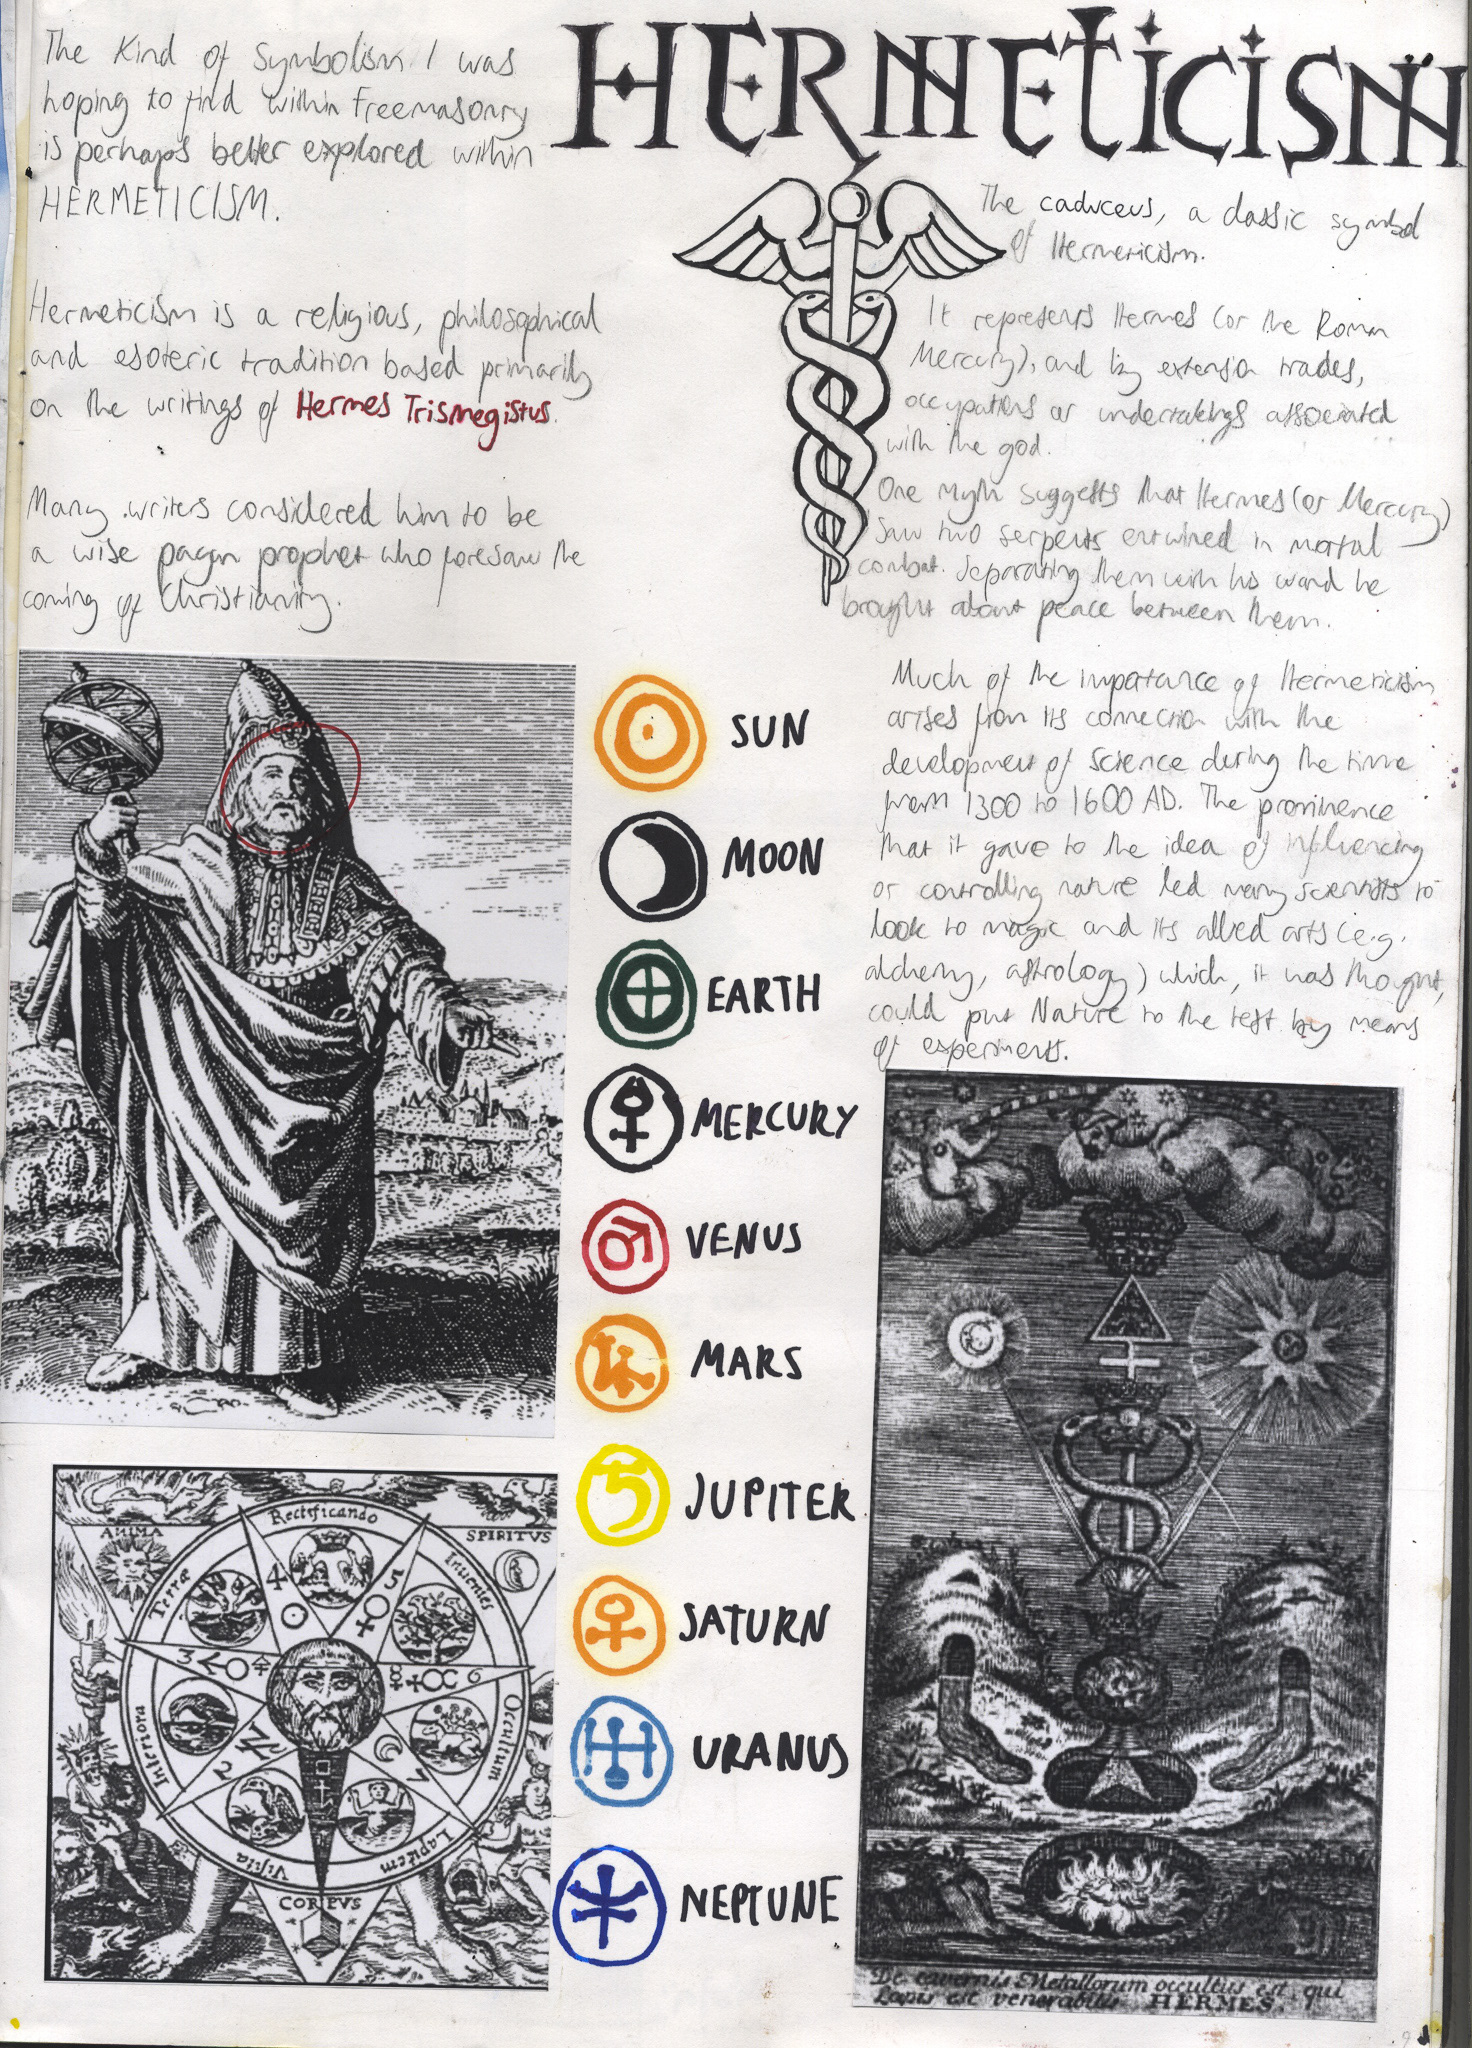 HERMETICISM
The Kind of Symbolism I was
hoping to find within Freemasonry
is perhaps better explored within
HERMETICISM.
Hermeticism is a religious, philosophical
and esoteric tradition based primarily
on the writings of Hermes Trismegistus.
Many writers considered him to be
a wise pagan prophet who foresaw the
coming of Christianity.
The caduceus, a classic symbol
of Hermeticism.
It represents Hermes (or the Roman
Mercury), and by extension trades,
occupations or undertakings associated
with the god.
One myth suggests that Hermes (or Mercury)
saw two serpents entwined in mortal
combat. Separating them with his wand he
brought about peace between them.
Much of the importance of Hermeticism
arises from its connection with the
development of science during the time
from 1300 to 1600 AD. The prominence
that it gave to the idea of influencing
or controlling nature led many scientists to
look to magic and its allied arts (e.g.
alchemy, astrology) which, it was thought,
could put Nature to the test by means
of experiments.
SUN
MOON
EARTH
MERCURY
VENUS
MARS
JUPITER
SATURN
URANUS
NEPTUNE
ANIMA
SPIRITVS
Visita
Interiora
Terræ
Rectificando
Invenies
Occultum
Lapidem
2
3
4
5
6
7
CORPVS
De cavernis Metallorum occultus est, qui
Lapis est venerabilis HERMES.
9